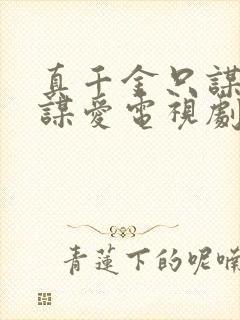 真千金只謀
謀愛電視劇
青蓮下的呢喃